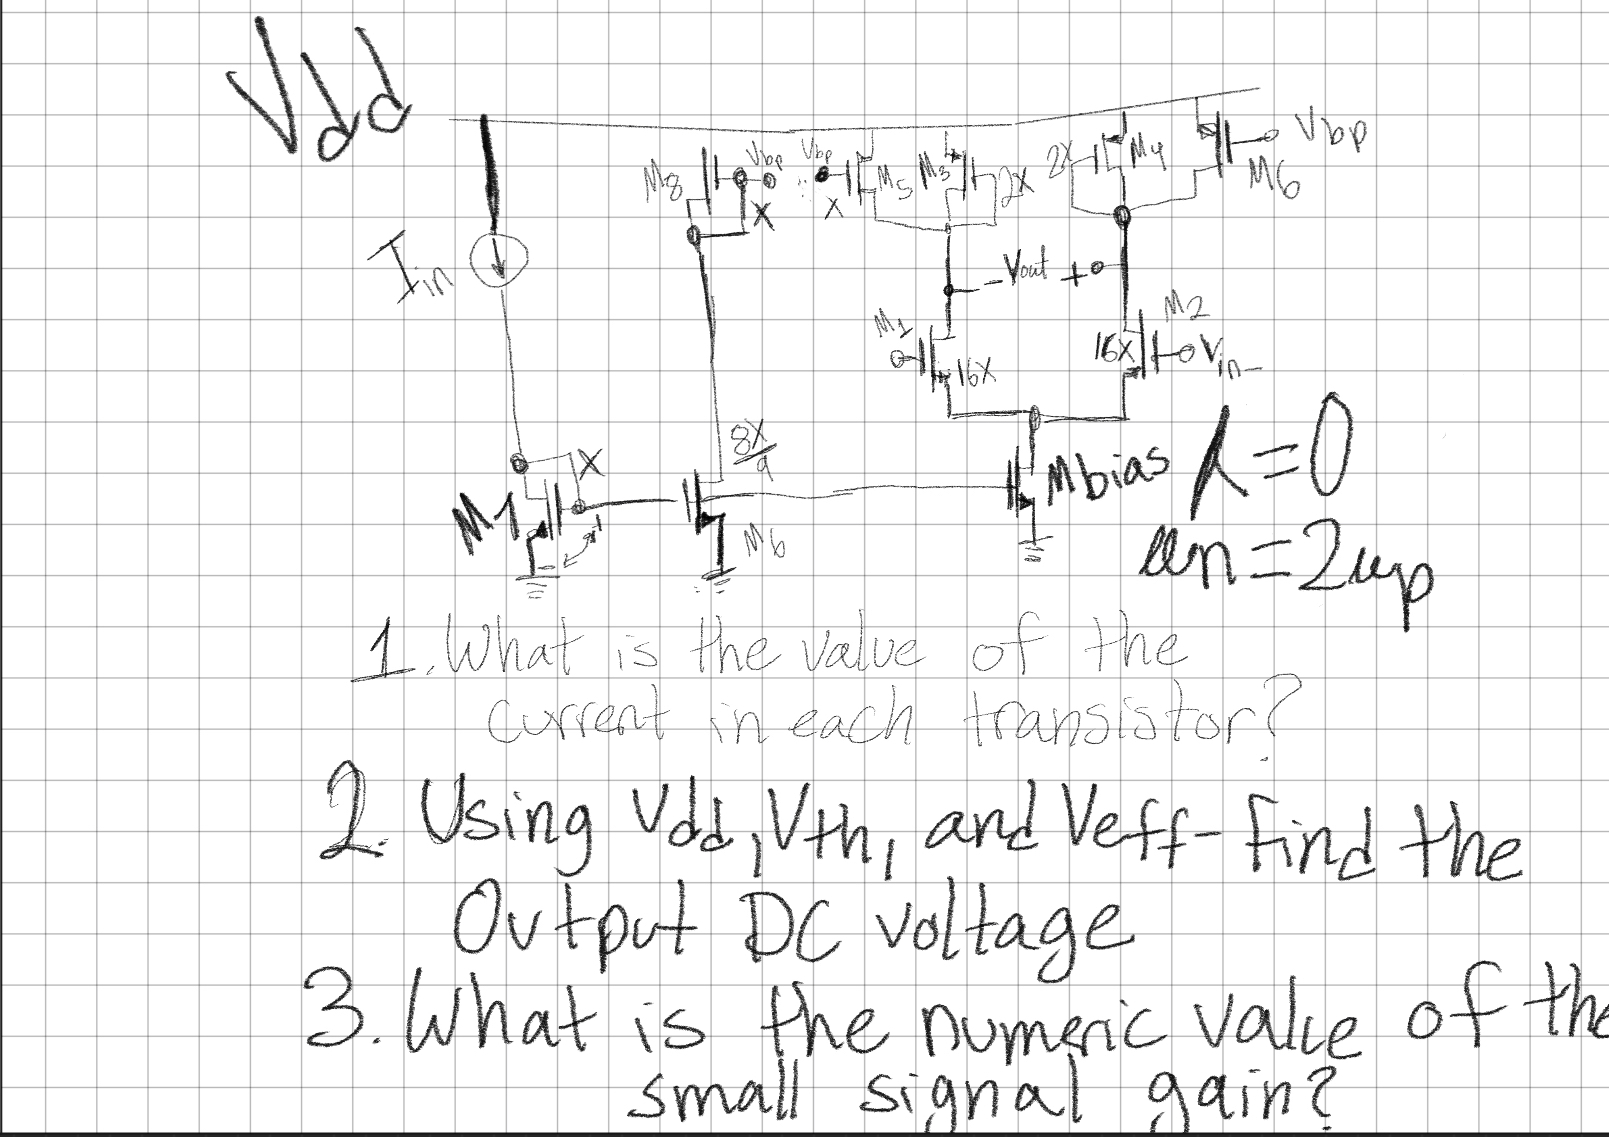 Vdd
Vbp
Vbp
Vbp
M8
X
X
M5
M3
2X
2X
M4
M6
Iin
- Vout +
M1
16X
M2
16X
Vin-
X
M1
8X/9
M6
Mbias
λ=0
un=2up
1. What is the value of the
current in each transistor?
2. Using Vdd, Vth, and Veff- find the
Output DC voltage
3. What is the numeric value of the
small signal gain?